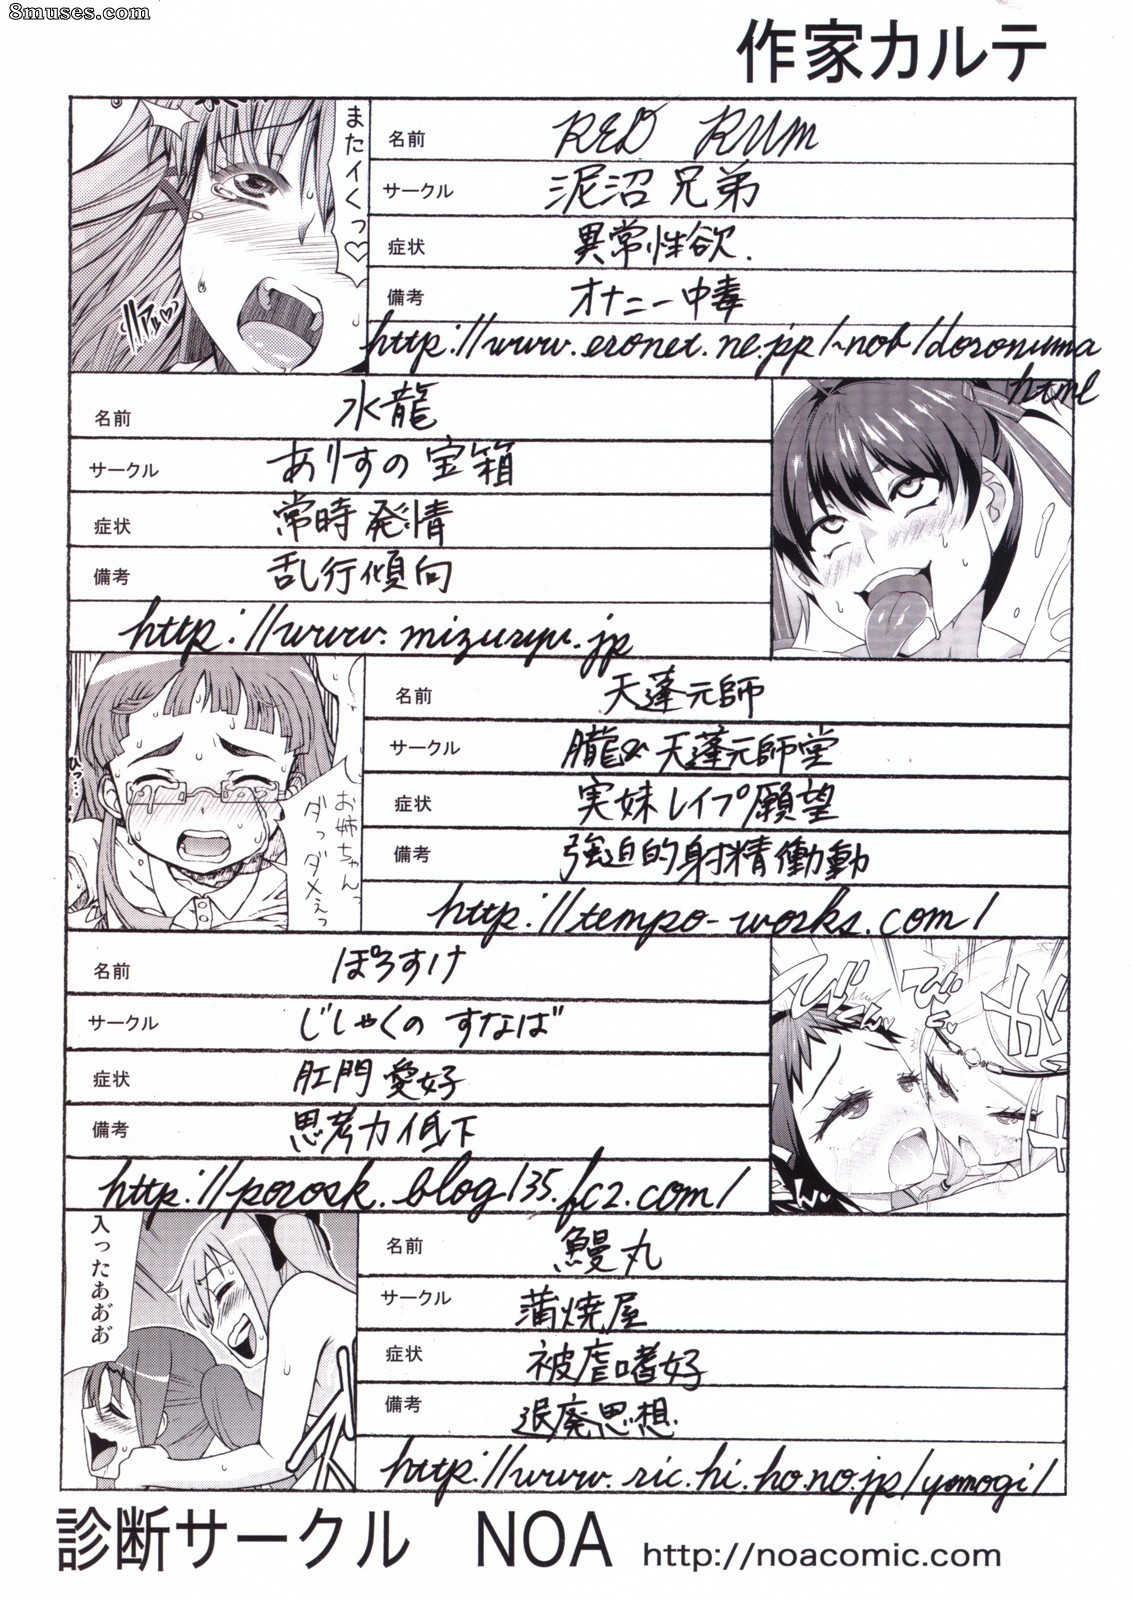 8muses.com
作家カルテ
またイくっ♡
名前 RED RUM
サークル 泥沼兄弟
症状 異常性欲.
備考 オナニー中毒
http://www.eronet.ne.jp/~nob/doronuma
html
名前 水龍
サークル ありすの宝箱
症状 常時発情
備考 乱行傾向
http://www.mizuryu.jp
お姉ちゃんっ
ダっダメぇっ
名前 天蓬元師
サークル 朧&天蓬元師堂
症状 実妹レイプ願望
備考 強迫的射精衝動
http://tempo-works.com/
名前 ぽろすけ
サークル じしゃくのすなば
症状 肛門愛好
備考 思考力低下
http://porosk.blog135.fc2.com/
入ったあぢぢ
名前 鰻丸
サークル 蒲焼屋
症状 被虐嗜好
備考 退廃思想.
http://www.ric.hi.ho.no.jp/yomogi/
診断サークル NOA http://noacomic.com